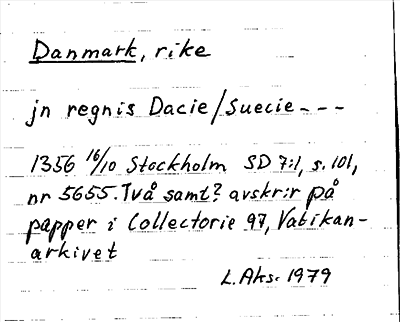 Danmark, rike
jn regnis Dacie/Suecie---
1356 16/10 Stockholm SD 7:1, s. 101,
nr 5655. Två samt? avskr:r på
papper i Collectorie 97, Vatikan-
arkivet
L. Aks. 1979